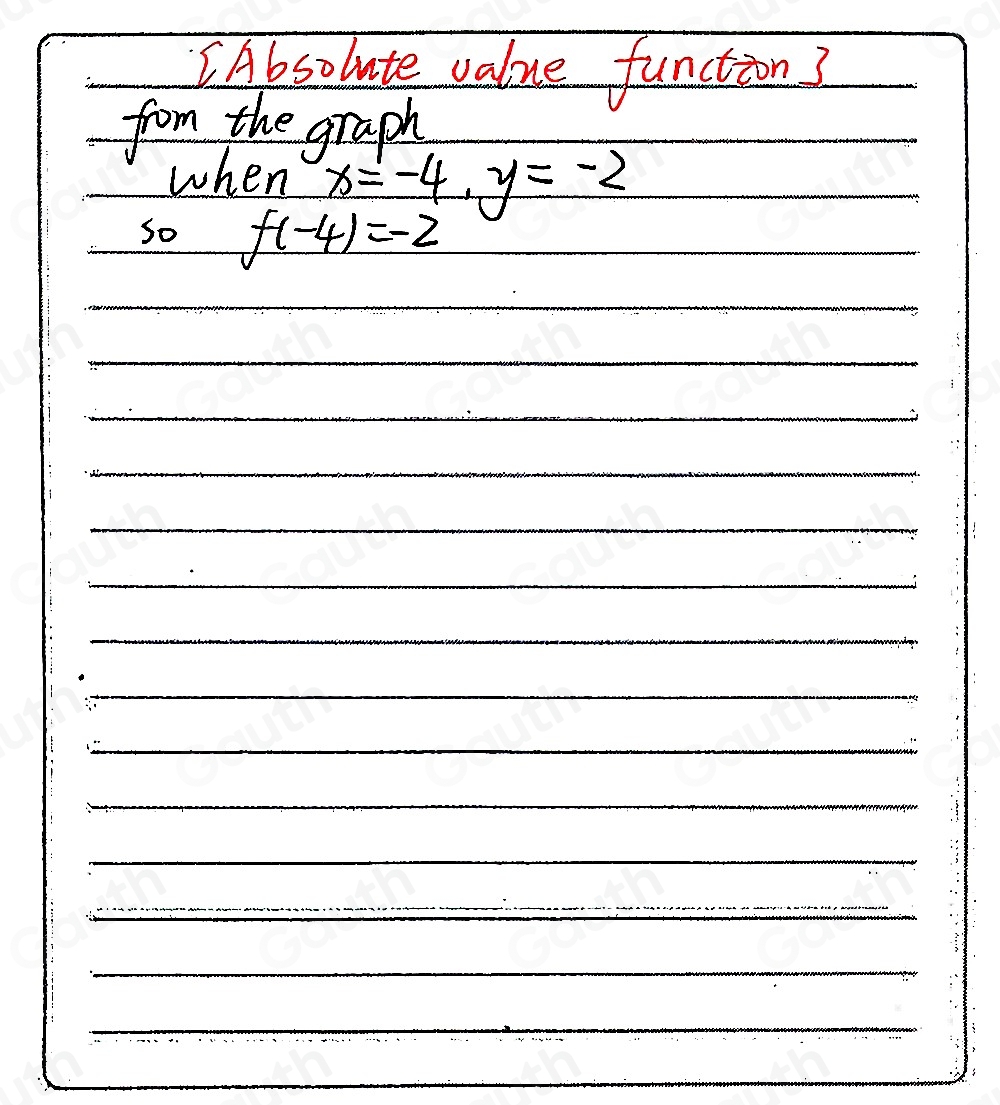 [Absolute value function]
from the graph
when x=-4, y=-2
so f(-4)=-2